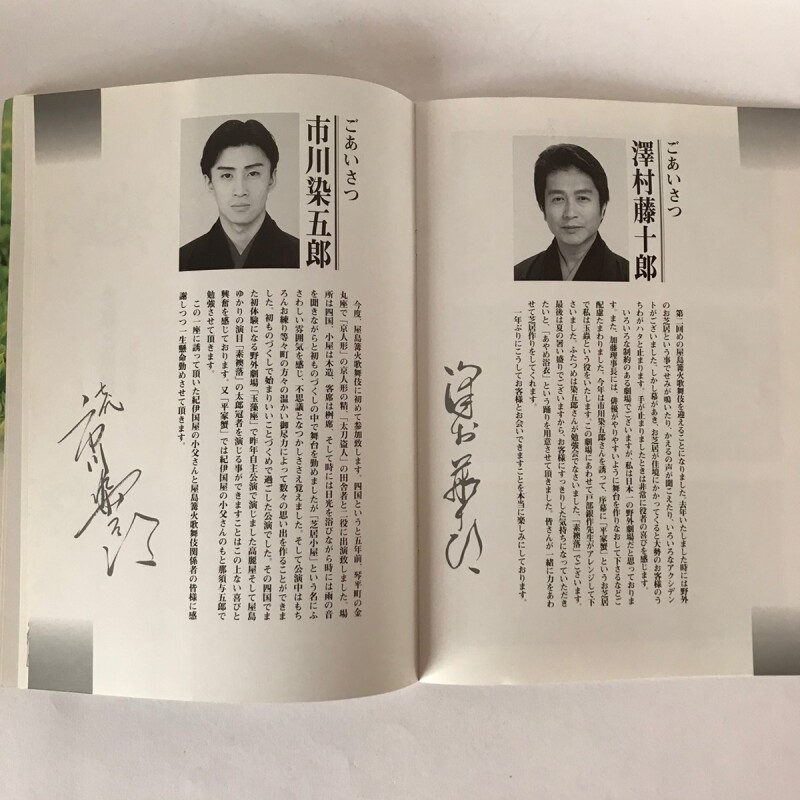 ごあいさつ
澤村藤十郎
第二回めの屋島篝火歌舞伎を迎えることになりました。去年いたしました時には野外
のお芝居という事でせみが鳴いたり、かえるの声が聞こえたり、いろいろなアクシデン
トがございました。しかし幕があき、お芝居が佳境にかかってくると大勢のお客様のう
ちわがハタと止まります。手が止まりましたときは非常に役者の喜びを感じます。
いろいろな制約のある劇場でございますが、私は日本一の野外劇場だと思っておりま
す。また、加藤理事長には、俳優がやりやすいように舞台を作りなおして下さるなどご
配慮たまわりました。今年は市川染五郎さんを誘って、序幕に「平家蟹」というお芝居
で私は玉蟲という役をいたします。この劇場にあわせて戸部銀作先生がアレンジして下
さいました。ふたつめは染五郎さんが勉強会でなさいました、「素襖落」でございます。
最後は夏の暑い盛りでございますから、お客様にすっきりした気持ちになっていただき
たいと、「あやめ浴衣」という踊りを用意させて頂きました。皆さんが一緒に力をあわ
せて芝居作りをしてくれます。
一年ぶりにこうしてお客様とお会いできますことを本当に楽しみにしております。
澤村藤十郎
ごあいさつ
市川染五郎
今度、屋島篝火歌舞伎に初めて参加致します。四国というと五年前、琴平町の金
丸座で「京人形」の京人形の精、「太刀盗人」の田舎者と二役に出演致しました。場
所は四国、小屋は木造、客席は桝席、そして時には日光を浴びながら時には雨の音
を聞きながらと初ものづくしの中で舞台を勤めましたが「芝居小屋」という名にふ
さわしい雰囲気を感じ、不思議となつかしささえ覚えました。そして公演中はもち
ろんお練り等々町の方々の温かい御尽力によって数々の思い出を作ることができま
した。初ものづくしで始まりいいことづくめで過ごした公演でした。その四国でま
た初体験になる野外劇場「玉藻座」で昨年自主公演で演じました高麗屋そして屋島
ゆかりの演目「素襖落」の太郎冠者を演じる事ができますことはこの上ない喜びと
興奮を感じております。又「平家蟹」では紀伊国屋の小父さんのもと那須与五郎で
勉強させて頂きます。
この一座に誘って頂いた紀伊国屋の小父さんと屋島篝火歌舞伎関係者の皆様に感
謝しつつ一生懸命勤めさせて頂きます。